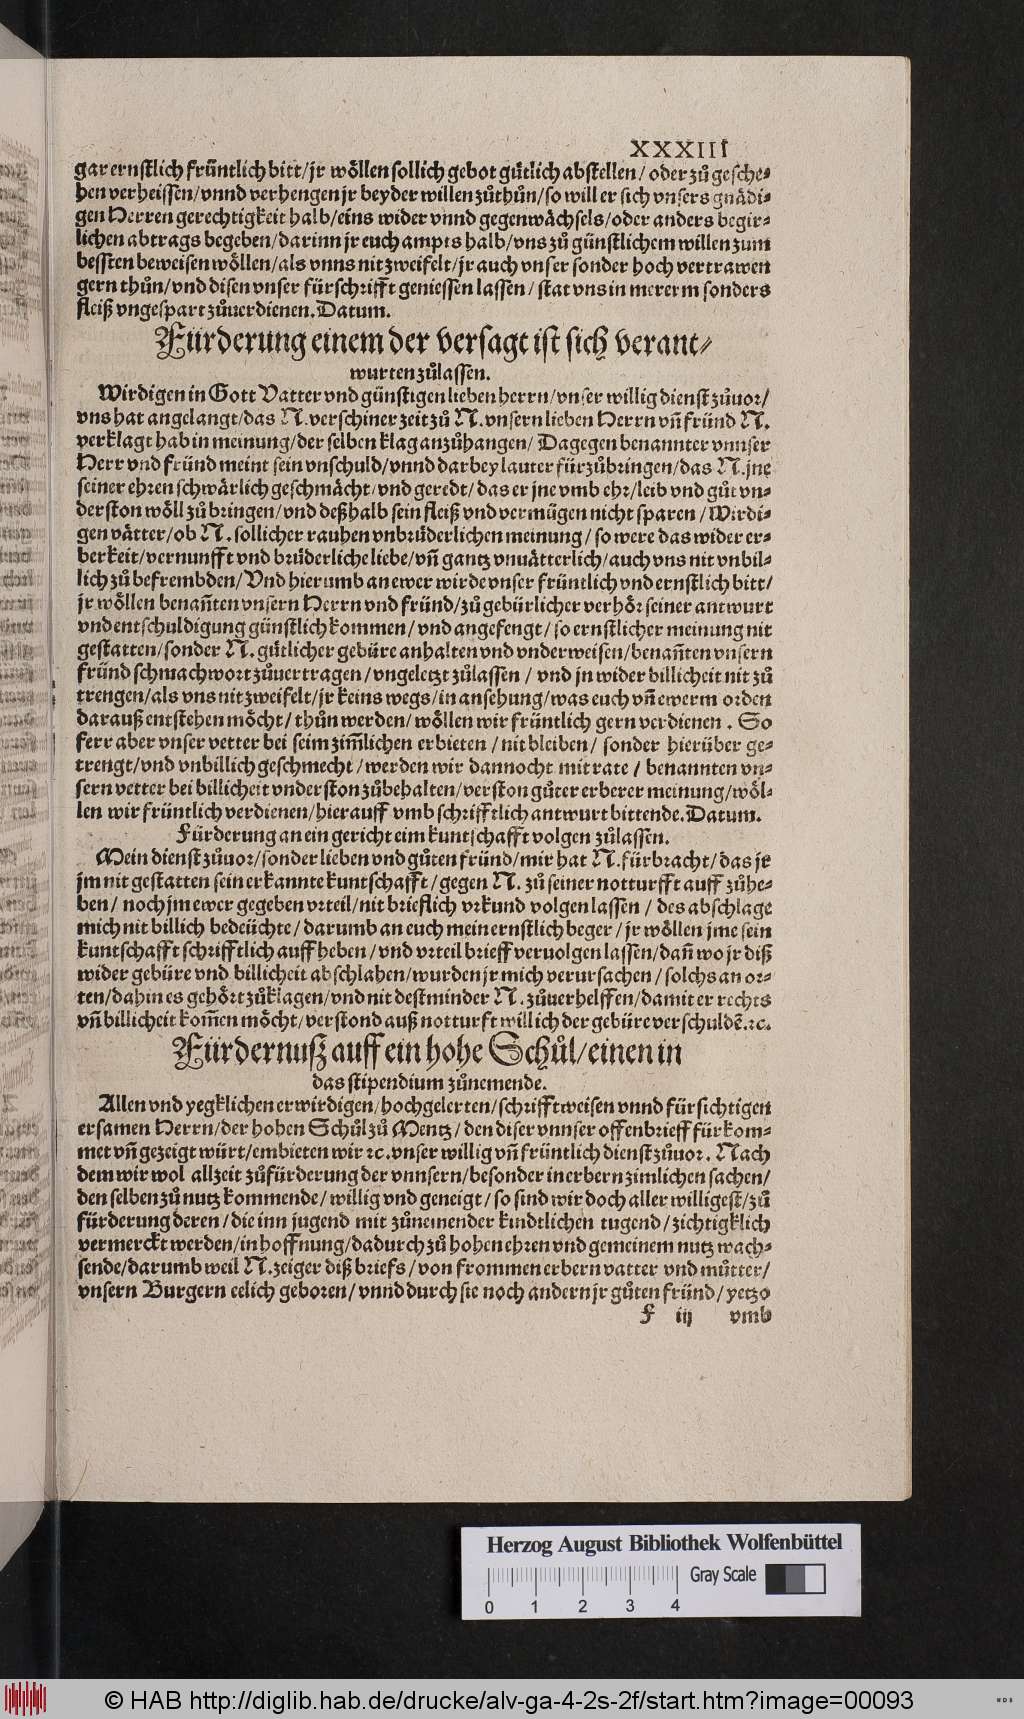 XXXIII
gar ernstlich früntlich bitt/ jr wöllen sollich gebot gütlich abstellen/ oder zů gesche-
hen verheissen/ vnnd verhengen jr beyder willen zůthůn/ so will er sich vnsers gnädi-
gen Herren gerechtigkeit halb/ eins wider vnnd gegenwächsels/ oder anders begir-
lichen abtrags begeben/ darinn jr euch ampts halb/ vns zů günstlichem willen zum
bessten beweisen wöllen/ als vnns nit zweifelt/ jr auch vnser sonder hoch vertrawen
gern thůn/ vnd disen vnser fürschrifft geniessen lassen/ stat vns in mererm sonders
fleiß vngespart zůuerdienen. Datum.
Fürderung einem der versagt ist sich verant-
wurten zůlassen.
Wirdigen in Gott Vatter vnd günstigen lieben herrn/ vnser willig dienst zůuor/
vns hat angelangt/ das N. verschiner zeit zů N. vnsern lieben Herrn vñ fründ N.
verklagt hab in meinung/ der selben klag anzůhangen/ Dagegen benannter vnnser
Herr vnd fründ meint sein vnschuld/ vnnd darbey lauter fürzůbringen/ das N. jne
seiner ehren schwärlich geschmächt/ vnd geredt/ das er jne vmb ehr/ leib vnd gůt vn-
derston wöll zů bringen/ vnd deßhalb sein fleiß vnd vermügen nicht sparen/ Wirdi-
gen vätter/ ob N. sollicher rauhen vnbrüderlichen meinung/ so were das wider er-
berkeit/ vernunfft vnd brüderliche liebe/ vñ gantz vnuätterlich/ auch vns nit vnbil-
lich zů befrembden/ Vnd hierumb an ewer wirde vnser früntlich vnd ernstlich bitt/
jr wöllen benañten vnsern Herrn vnd fründ/ zů gebürlicher verhör seiner antwurt
vnd entschuldigung günstlich kommen/ vnd angefengt/ so ernstlicher meinung nit
gestatten/ sonder N. gütlicher gebüre anhalten vnd vnderweisen/ benañten vnsern
fründ schmachwort zůuertragen/ vngeletzt zůlassen/ vnd jn wider billicheit nit zů
trengen/ als vns nit zweifelt/ jr keins wegs/ in ansehung/ was euch vñ ewerm orden
darauß entstehen möcht/ thůn werden/ wöllen wir früntlich gern verdienen. So
ferr aber vnser vetter bei seim zim̃lichen erbieten/ nit bleiben/ sonder hierüber ge-
trengt/ vnd vnbillich geschmecht/ werden wir dannocht mit rate/ benannten vn-
sern vetter bei billicheit vnderston zůbehalten/ verston gůter erberer meinung/ wöl-
len wir früntlich verdienen/ hierauff vmb schrifftlich antwurt bittende. Datum.
Fürderung an ein gericht eim kuntschafft volgen zůlassen.
Mein dienst zůuor/ sonder lieben vnd gůten fründ/ mir hat N. fürbracht/ das jr
jm nit gestatten sein erkannte kuntschafft/ gegen N. zů seiner notturfft auff zůhe-
ben/ noch jm ewer gegeben vrteil/ nit brieflich vrkund volgen lassen/ des abschlage
mich nit billich bedeüchte/ darumb an euch mein ernstlich beger/ jr wöllen jme sein
kuntschafft schrifftlich auff heben/ vnd vrteil brieff veruolgen lassen/ dañ wo jr diß
wider gebüre vnd billicheit abschlahen/ wurden jr mich verursachen/ solchs an or-
ten/ dahin es gehört zůklagen/ vnd nit destminder N. zůuerhelffen/ damit er rechts
vñ billicheit kom̃en möcht/ verstond auß notturft will ich der gebüre verschuldẽ. ꝛc.
Fürdernuß auff ein hohe Schůl/ einen in
das stipendium zůnemende.
Allen vnd yegklichen erwirdigen/ hochgelerten/ schrifftweisen vnnd fürsichtigen
ersamen Herrn/ der hohen Schůl zů Mentz/ den diser vnnser offenbrieff fürkom-
met vñ gezeigt würt/ embieten wir ꝛc. vnser willig vñ früntlich dienst zůuor. Nach
dem wir wol allzeit zůfürderung der vnnsern/ besonder in erbern zimlichen sachen/
den selben zů nutz kommende/ willig vnd geneigt/ so sind wir doch aller willigest/ zů
fürderung deren/ die inn jugend mit zůnemender kindtlichen tugend/ zichtigklich
vermerckt werden/ in hoffnung/ dadurch zů hohen ehren vnd gemeinem nutz wach-
sende/ darumb weil N. zeiger diß briefs/ von frommen erbern vatter vnd můtter/
vnsern Burgern eelich geboren/ vnnd durch sie noch andern jr gůten fründ/ yetzo
F iij vmb
Herzog August Bibliothek Wolfenbüttel
Gray Scale
0 1 2 3 4
© HAB http://diglib.hab.de/drucke/alv-ga-4-2s-2f/start.htm?image=00093
WDB